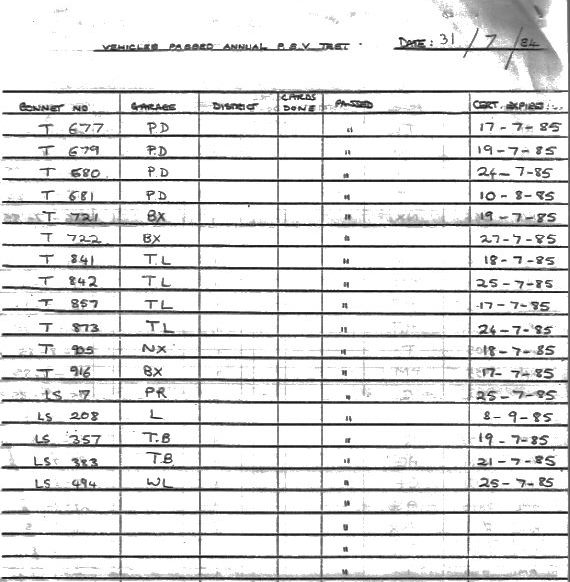 VEHICLES PASSED ANNUAL P.S.V TEST. DATE: 31/7/84
BONNET NO GARAGE DISTRICT CARDS DONE PASSED CERT. EXPIRES
T 677 P.D " 17-7-85
T 679 P.D " 19-7-85
T 680 P.D " 24-7-85
T 681 P.D " 10-8-85
T 721 BX " 19-7-85
T 722 BX " 27-7-85
T 841 T.L " 18-7-85
T 842 T L " 25-7-85
T 857 T L " 17-7-85
T 873 T L " 24-7-85
T 905 NX " 18-7-85
T 916 BX " 17-7-85
LS 7 PR " 25-7-85
LS 208 L " 8-9-85
LS 357 T.B " 19-7-85
LS 383 T.B " 21-7-85
LS 494 WL " 25-7-85
"
"
"
"